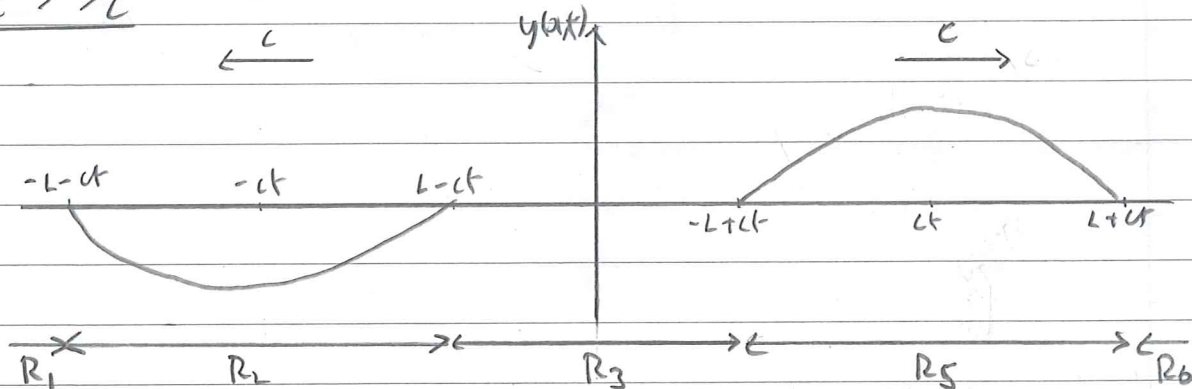 y(x,t)
c c
-L-ct -ct L-ct
-L+ct ct L+ct
R₁ R₂ R₃ R₅ R₆